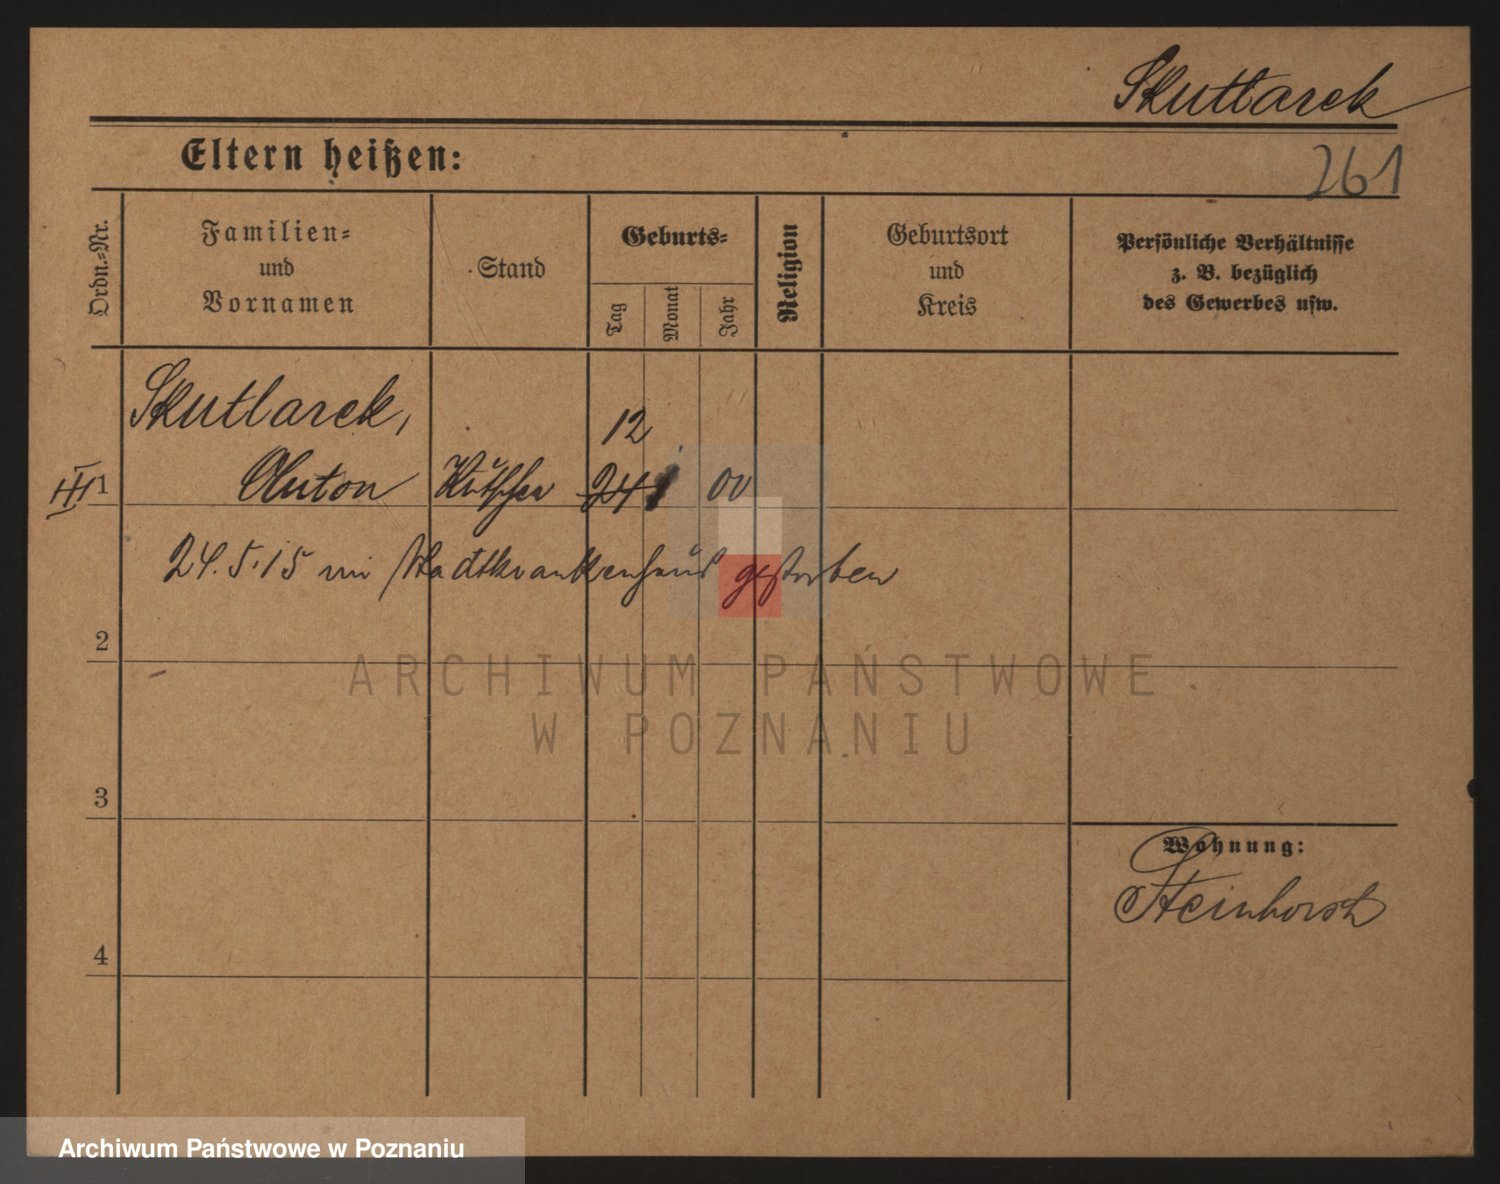 Skutlarek
Eltern heißen:
261
Ordn.-Nr.
Familien-
und
Vornamen
Stand
Geburts-
Tag
Monat
Jahr
Religion
Geburtsort
und
Kreis
Persönliche Verhältnisse
z. B. bezüglich
des Gewerbes usw.
Skutlarek,
12
III 1 Anton Kutscher 24 1 00
24.5.15 im Stadtkrankenhaus gestorben
2
ARCHIWUM PAŃSTWOWE
W POZNANIU
3
Wohnung:
Steinhorst
4
Archiwum Państwowe w Poznaniu